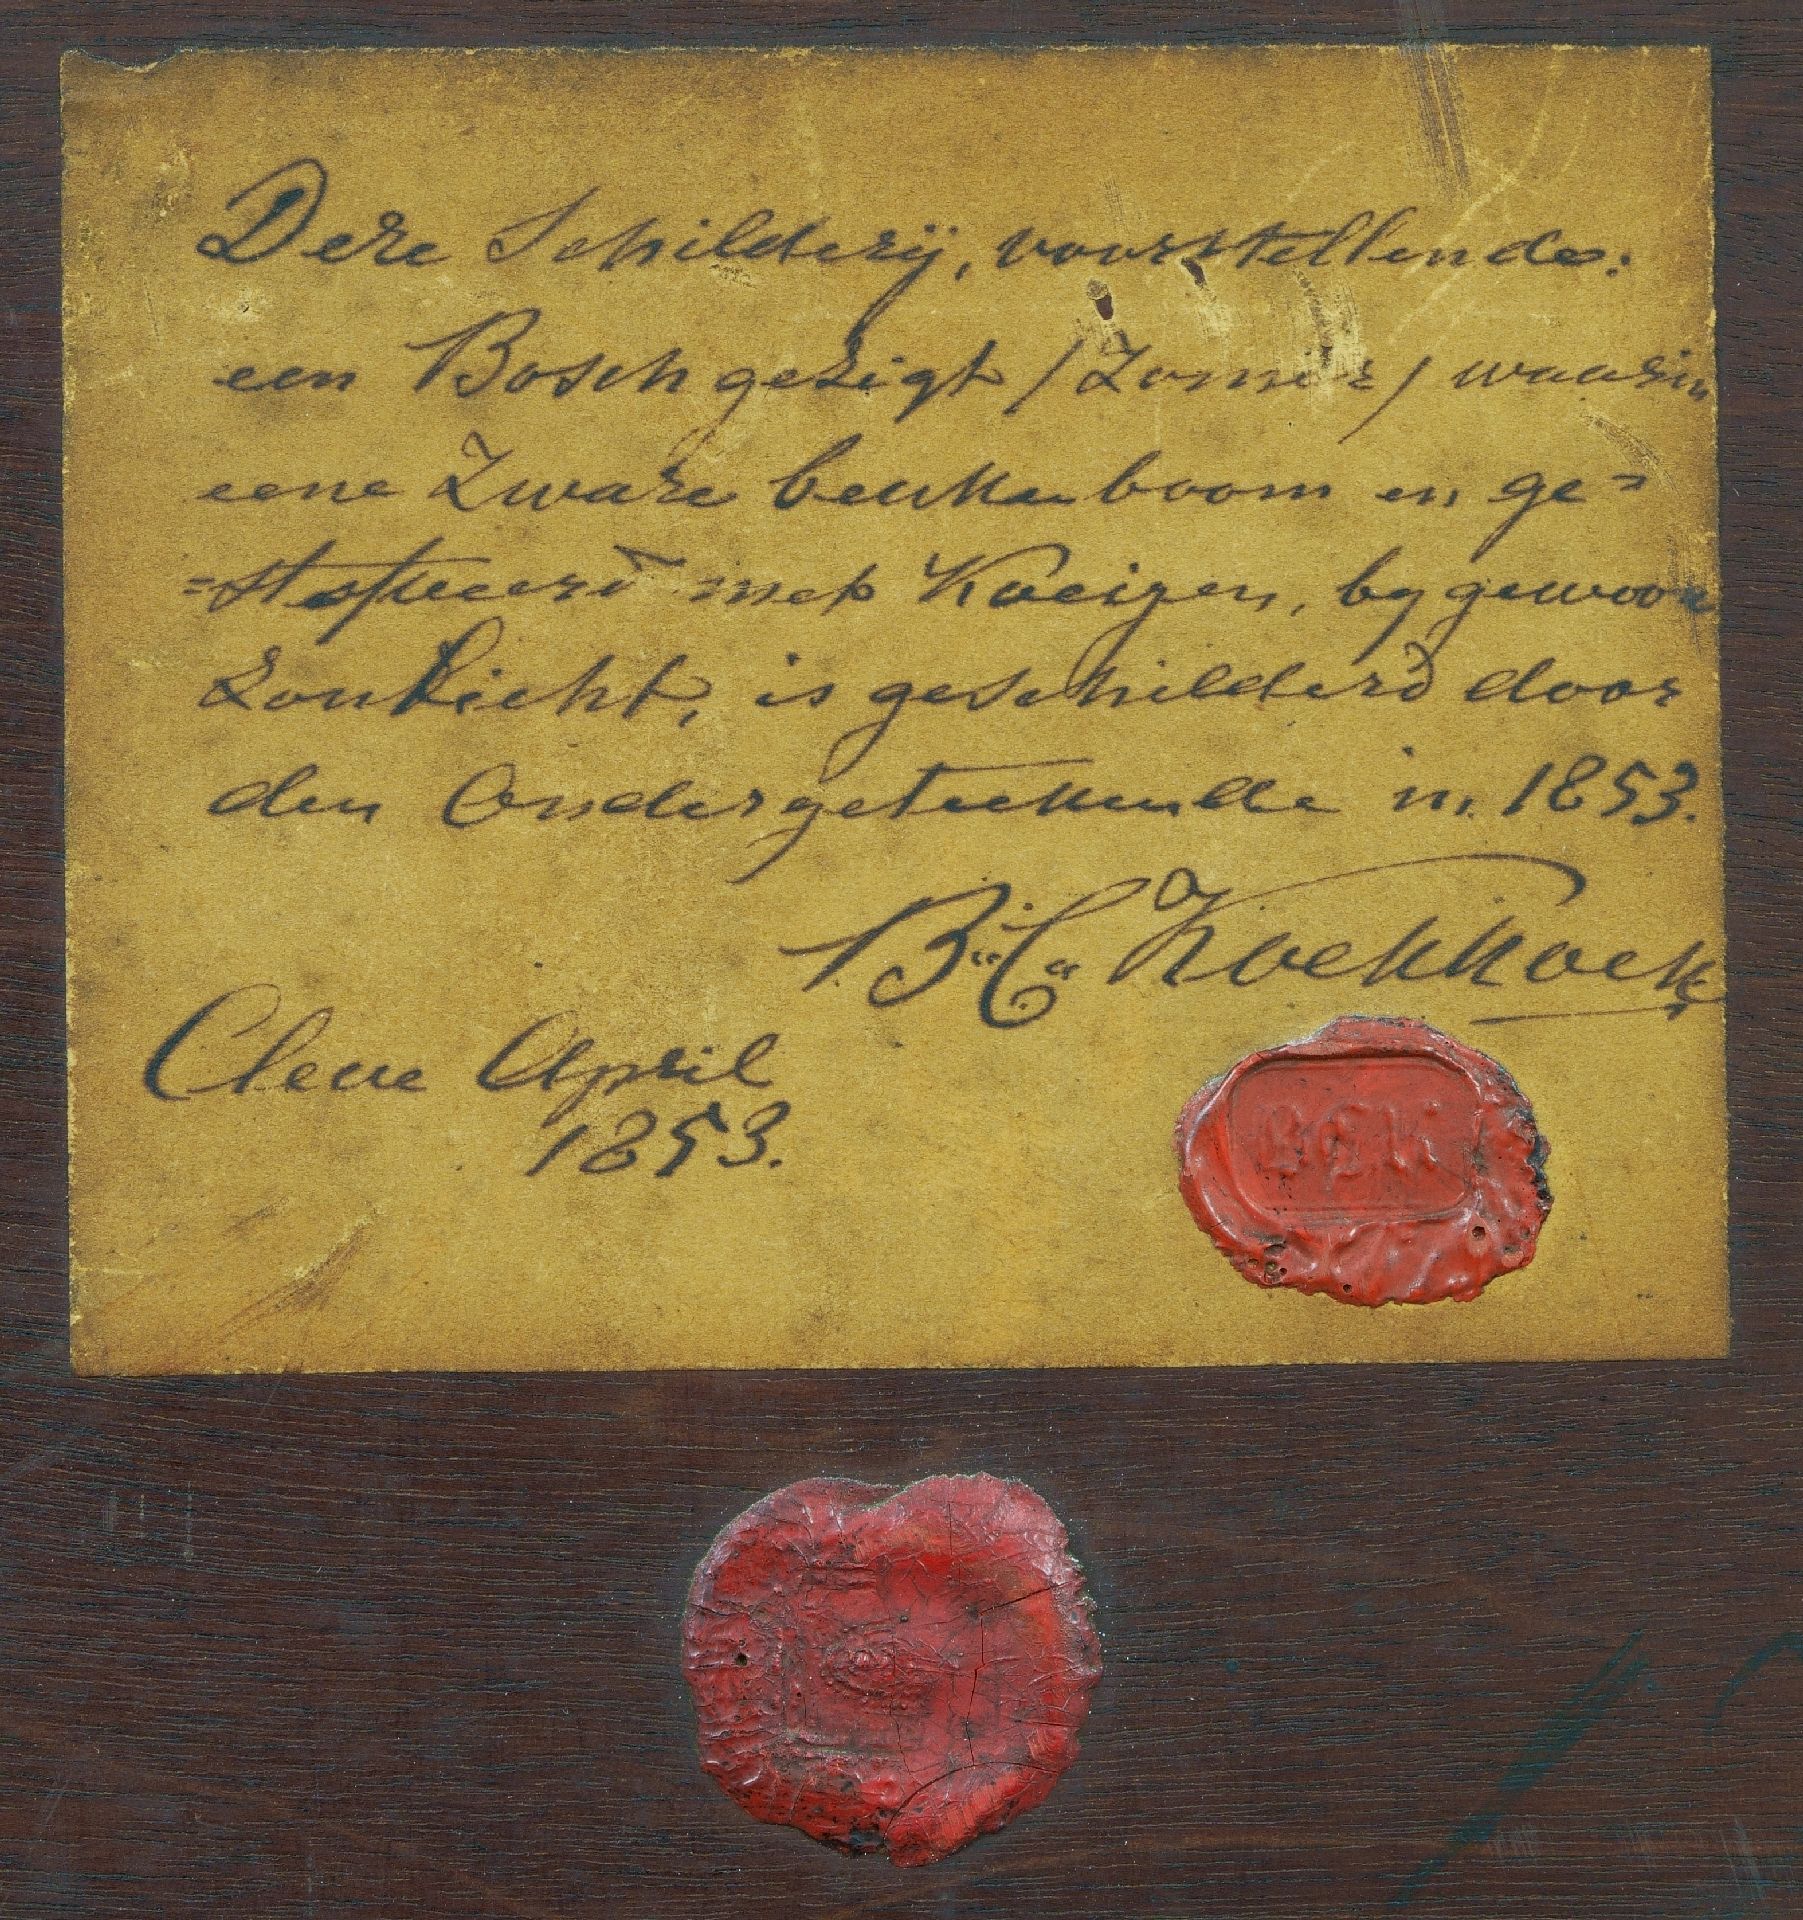 Deze Schilderÿ, voorstellende:
een Boschgezigt /Zomer/ waarin
eene Zware beukenboom en ge=
=stoffeerd met Koeijen, by gewoon
Zonlicht, is geschilderd door
den Ondergeteekende in 1853.
B. C. Koekkoek
Cleve April
1853.
BCK